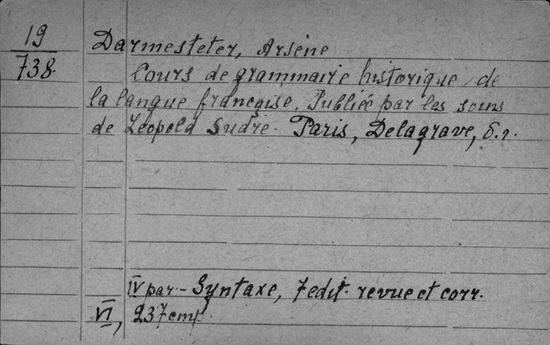 19
738.
Darmesteter, Arsène
Cours de grammaire historique de
la langue françgise. Publiée par les soins
de Léopold Sudre. Paris, Delagrave, S.r.
IV par - Syntaxe, 7 edit. revue et corr.
VI, 237 cmp.